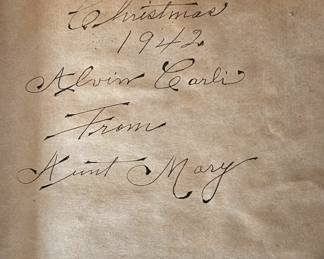 Christmas
1942
Alvin Carli
From
Aunt Mary